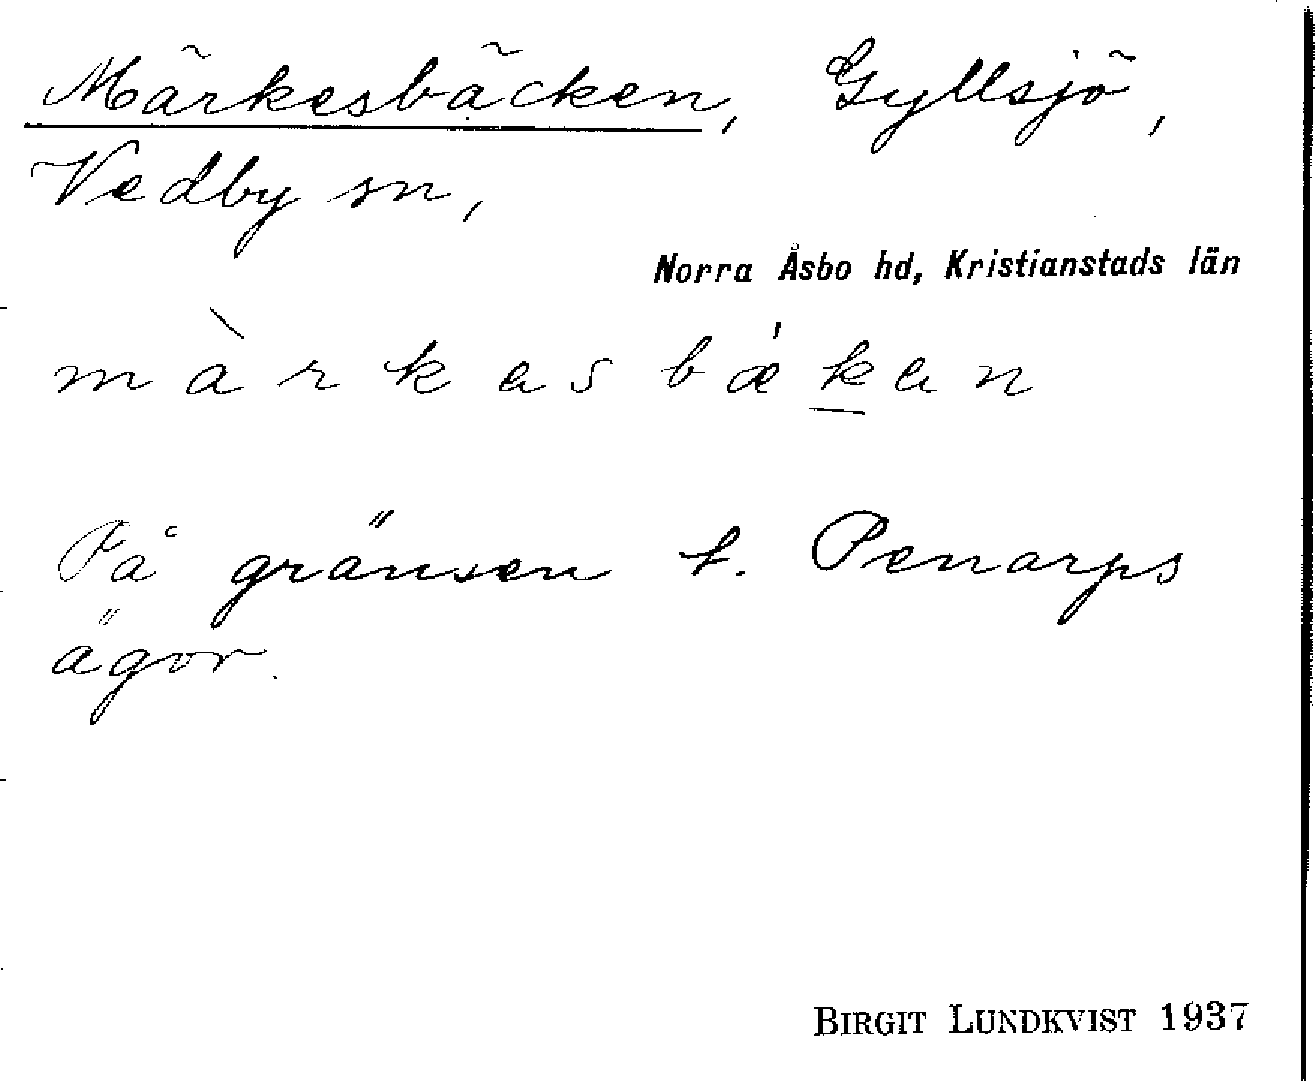 Märkesbäcken, Gyllsjö,
Vedby sn,
Norra Åsbo hd, Kristianstads län
màrkasbæ̍k̲an
På gränsen t. Penarps
ägor.
BIRGIT LUNDKVIST 1937